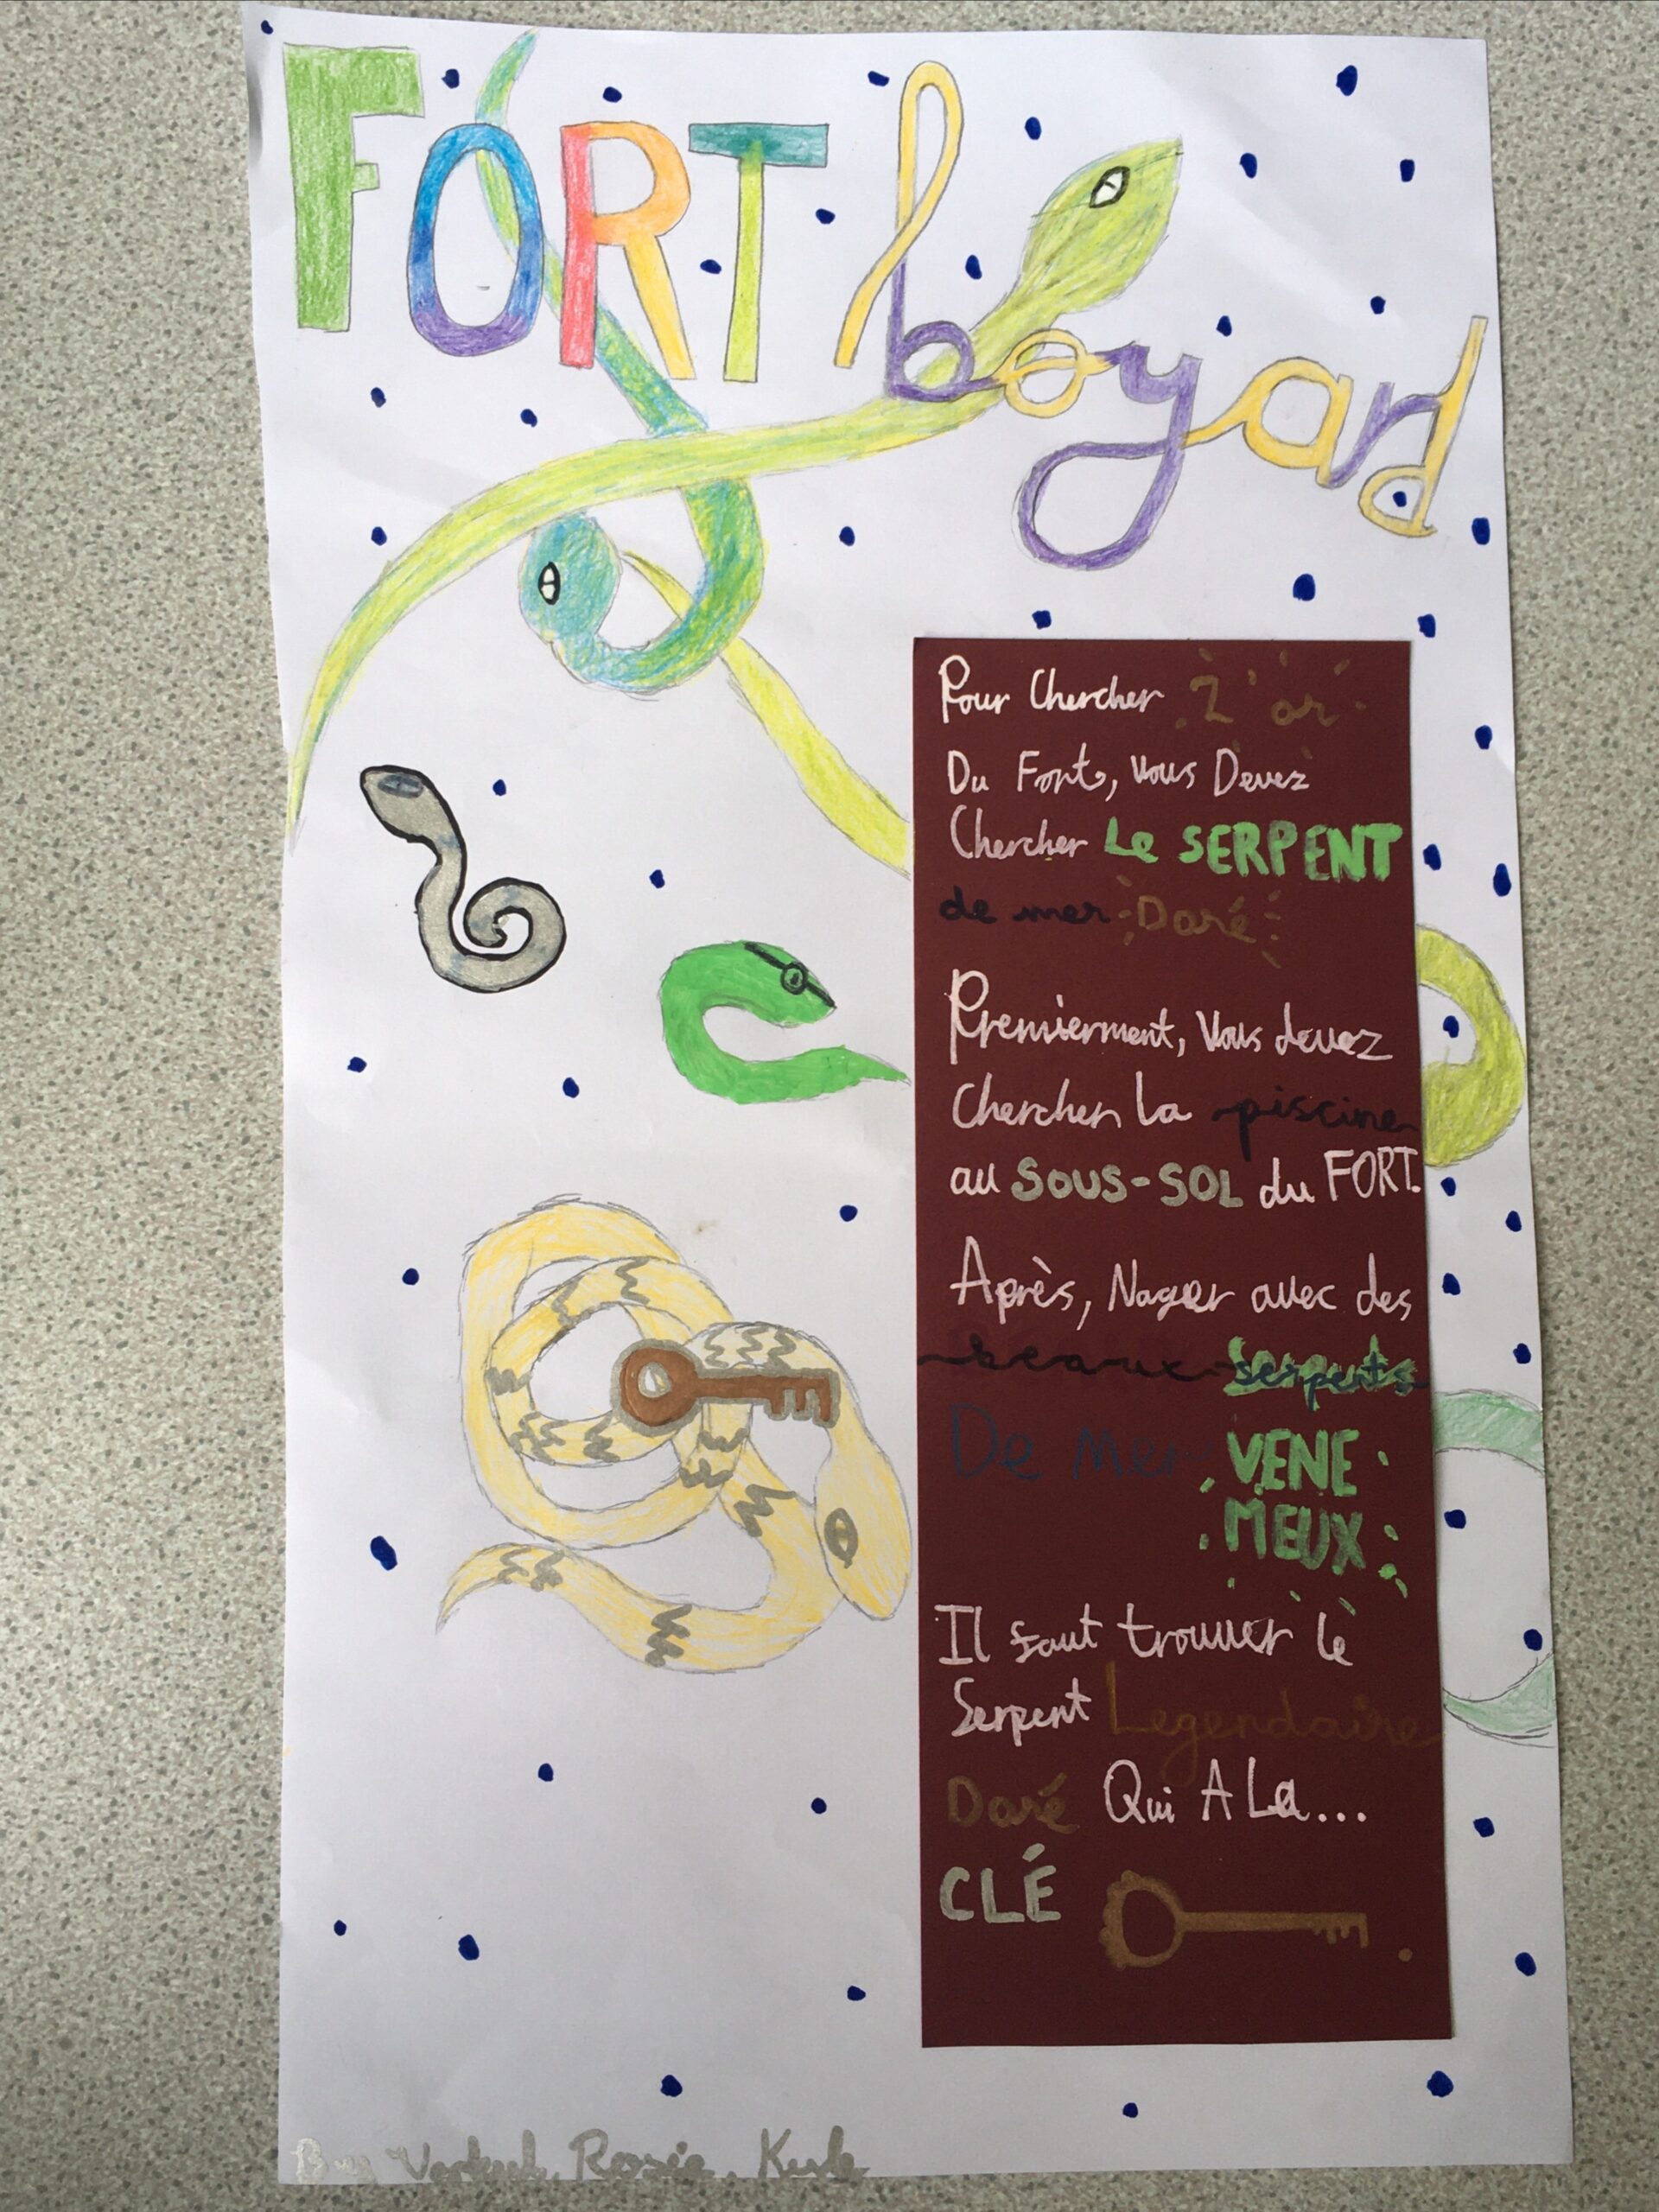 FORT boyard
Pour Chercher L'or
Du Fort, Vous Devez
Chercher Le SERPENT
de mer Doré
Premierment, Vous devez
Chercher La piscine
au SOUS-SOL du FORT.
Après, Nager avec des
beaux serpents
De Mer VENE
MEUX
Il faut trouver le
Serpent Legendaire
Doré Qui A La...
CLÉ
By Rosie,